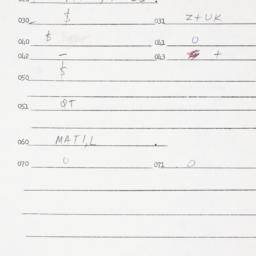 030 $ 031 Z+UK
040 $ 041 0
042 — 043 +
050 $
051 QT
060 MAT1,L.
070 0 071 0